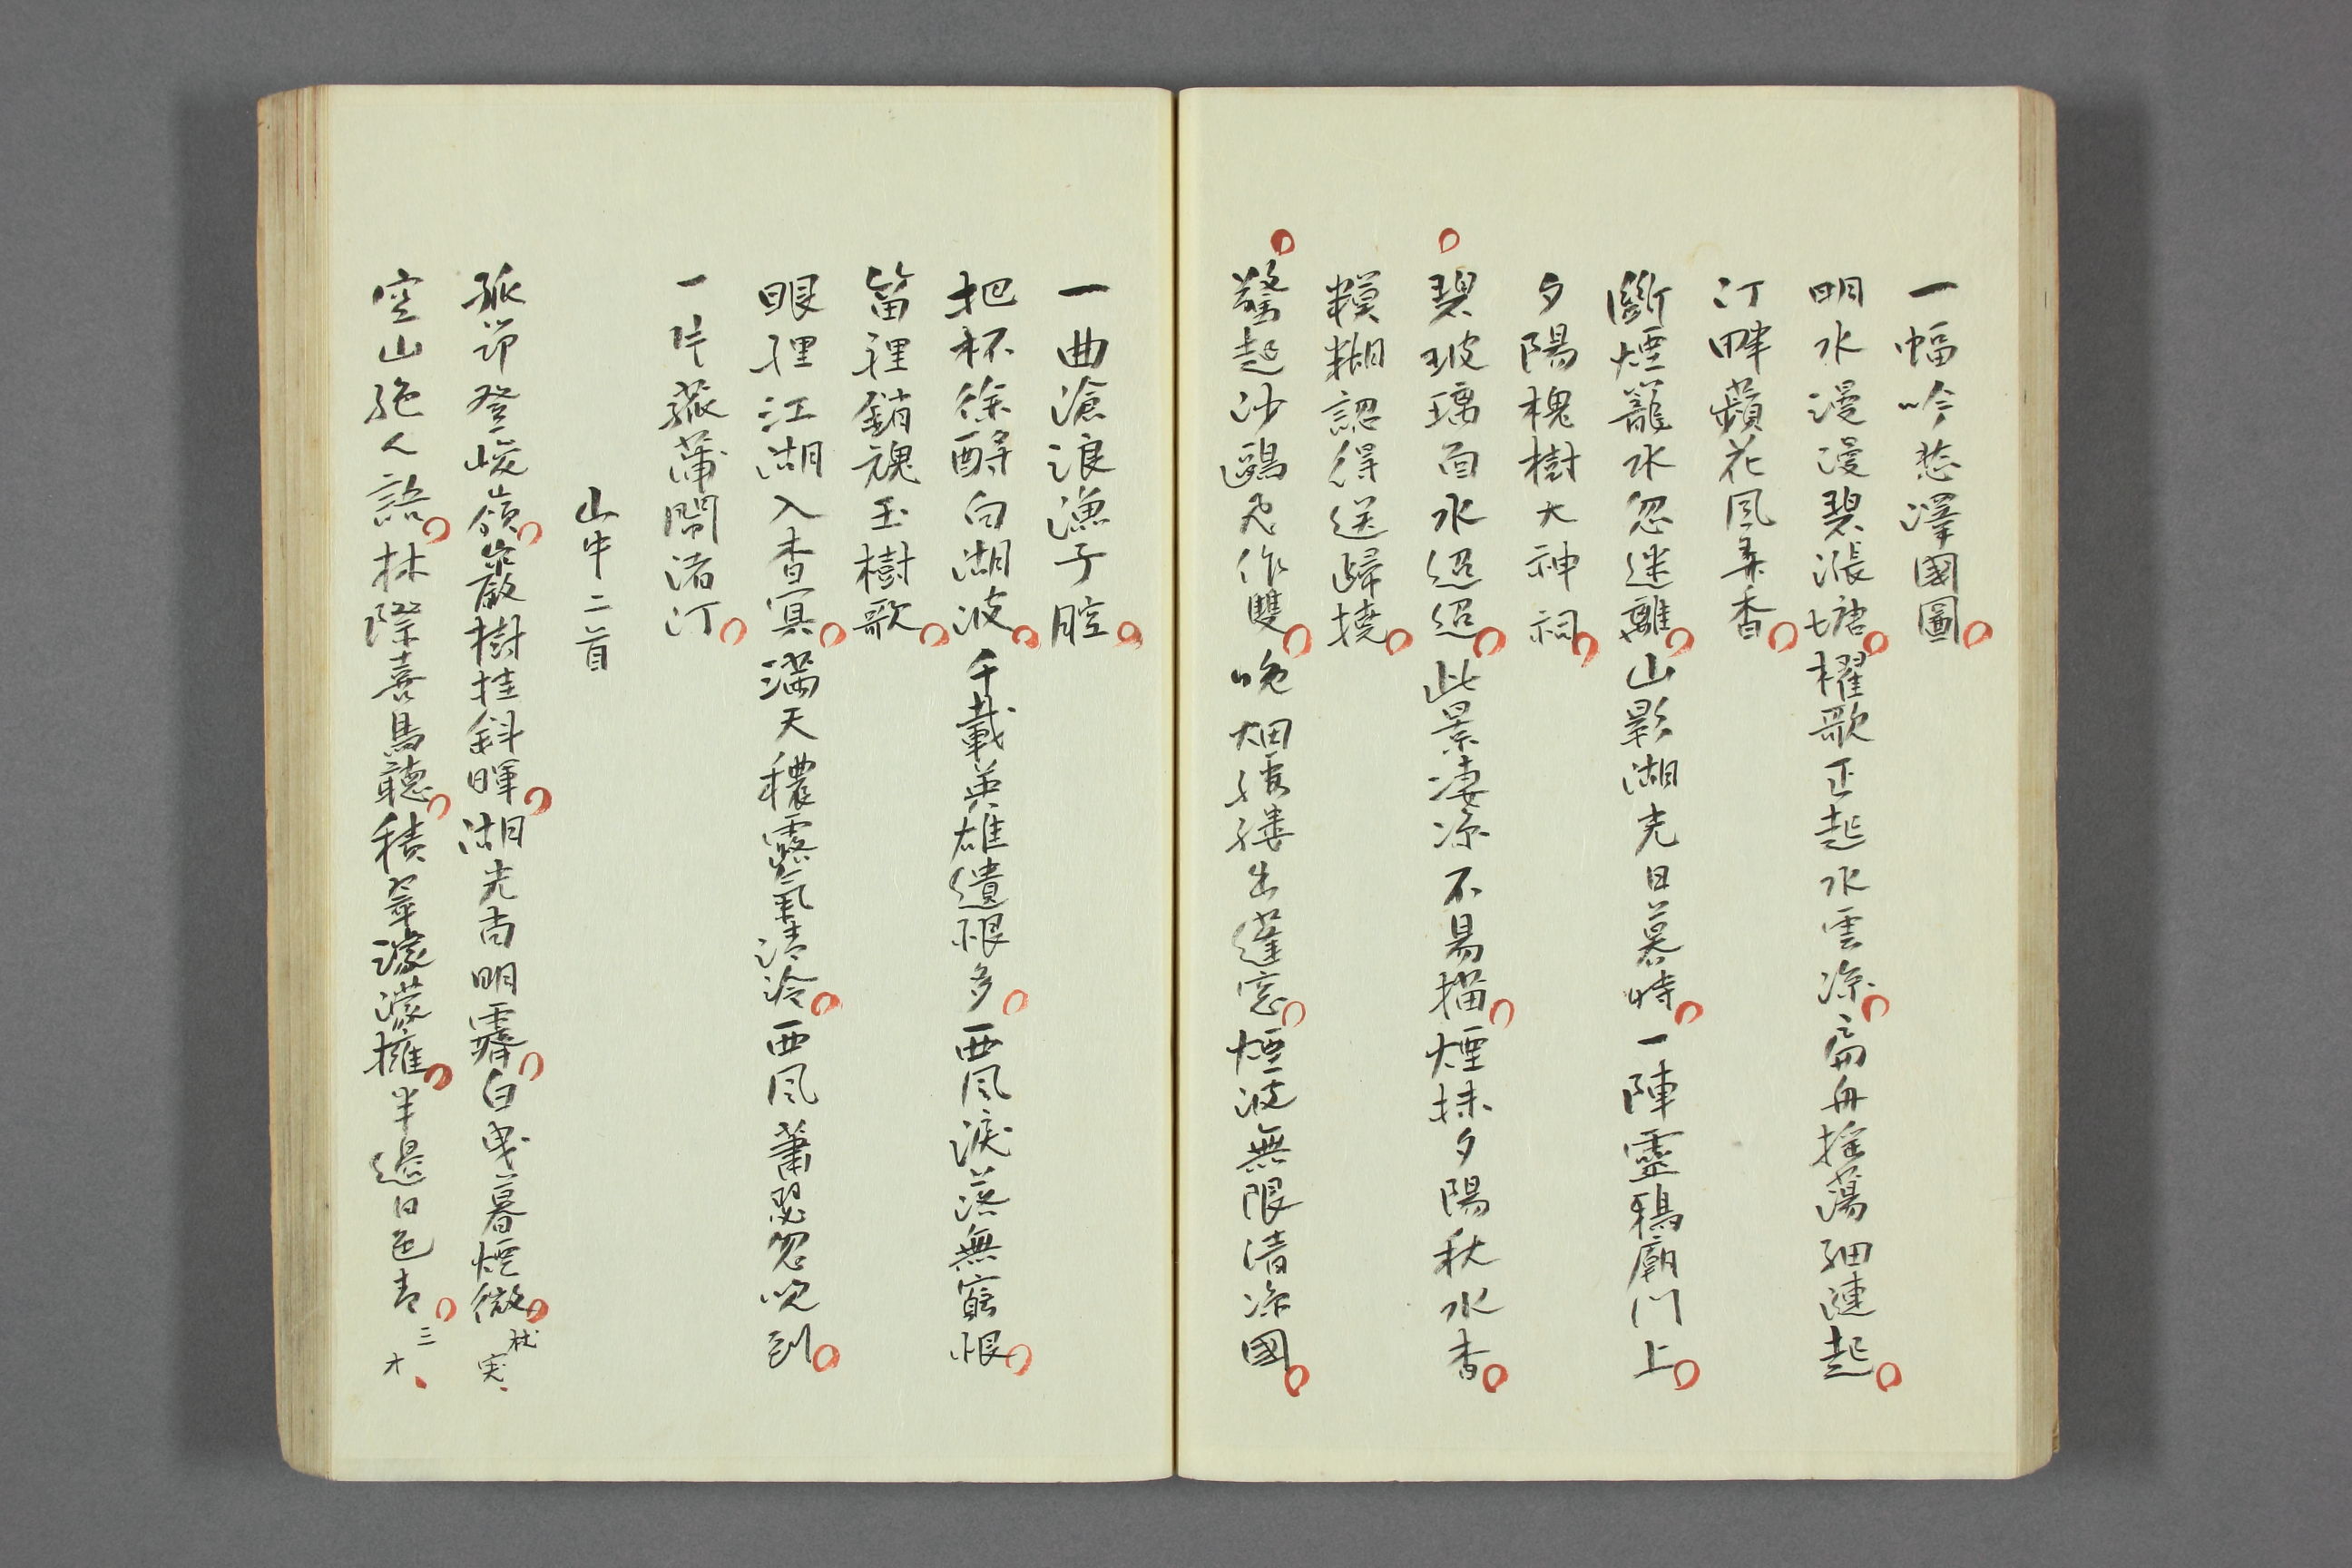 一幅吟愁澤國圖
明水漫漫碧漲塘櫂歌正起水雲涼扁舟搖蕩細漣起
汀畔蘋花風弄香
斷煙籠水忽迷離山影湖光日暮時一陣靈鴉廟門上
夕陽槐樹大神祠
碧玻璃面水迢迢此景凄涼不易描煙抹夕陽秋水杳
糢糊認得送歸橈
驚起沙鷗飛作雙晚烟縷縷出篷窓煙波無限清涼國
一曲滄浪漁子腔
把杯徐酹白湖波千載英雄遺恨多西風淚落無窮恨
笛裡銷魂玉樹歌
眼裡江湖入杳冥滿天穠露氣清泠西風蕭瑟忽吹到
一片菰蒲閙渚汀
山中二首
孤筇登峻嶺巖樹挂斜暉湖光尚明霽白曳暮煙微
空山絶人語林際喜鳥聽積翠濛濛擁半邊日色青